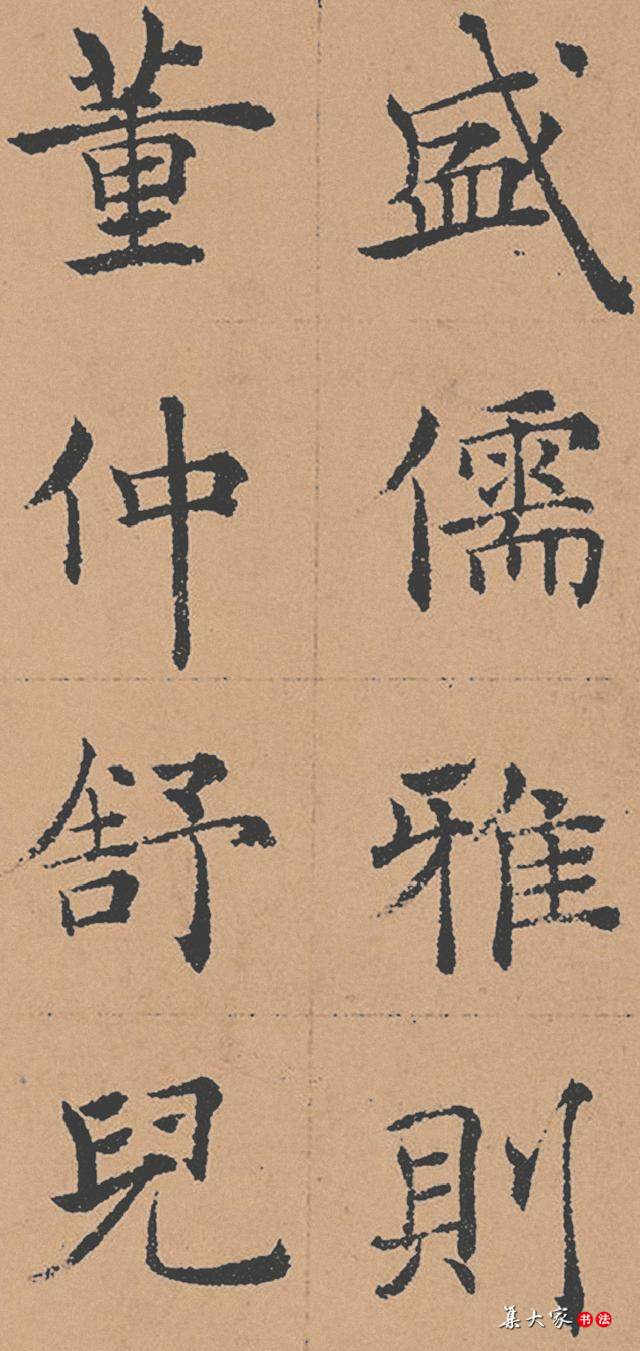 盛儒雅則
董仲舒兒
集大家书法